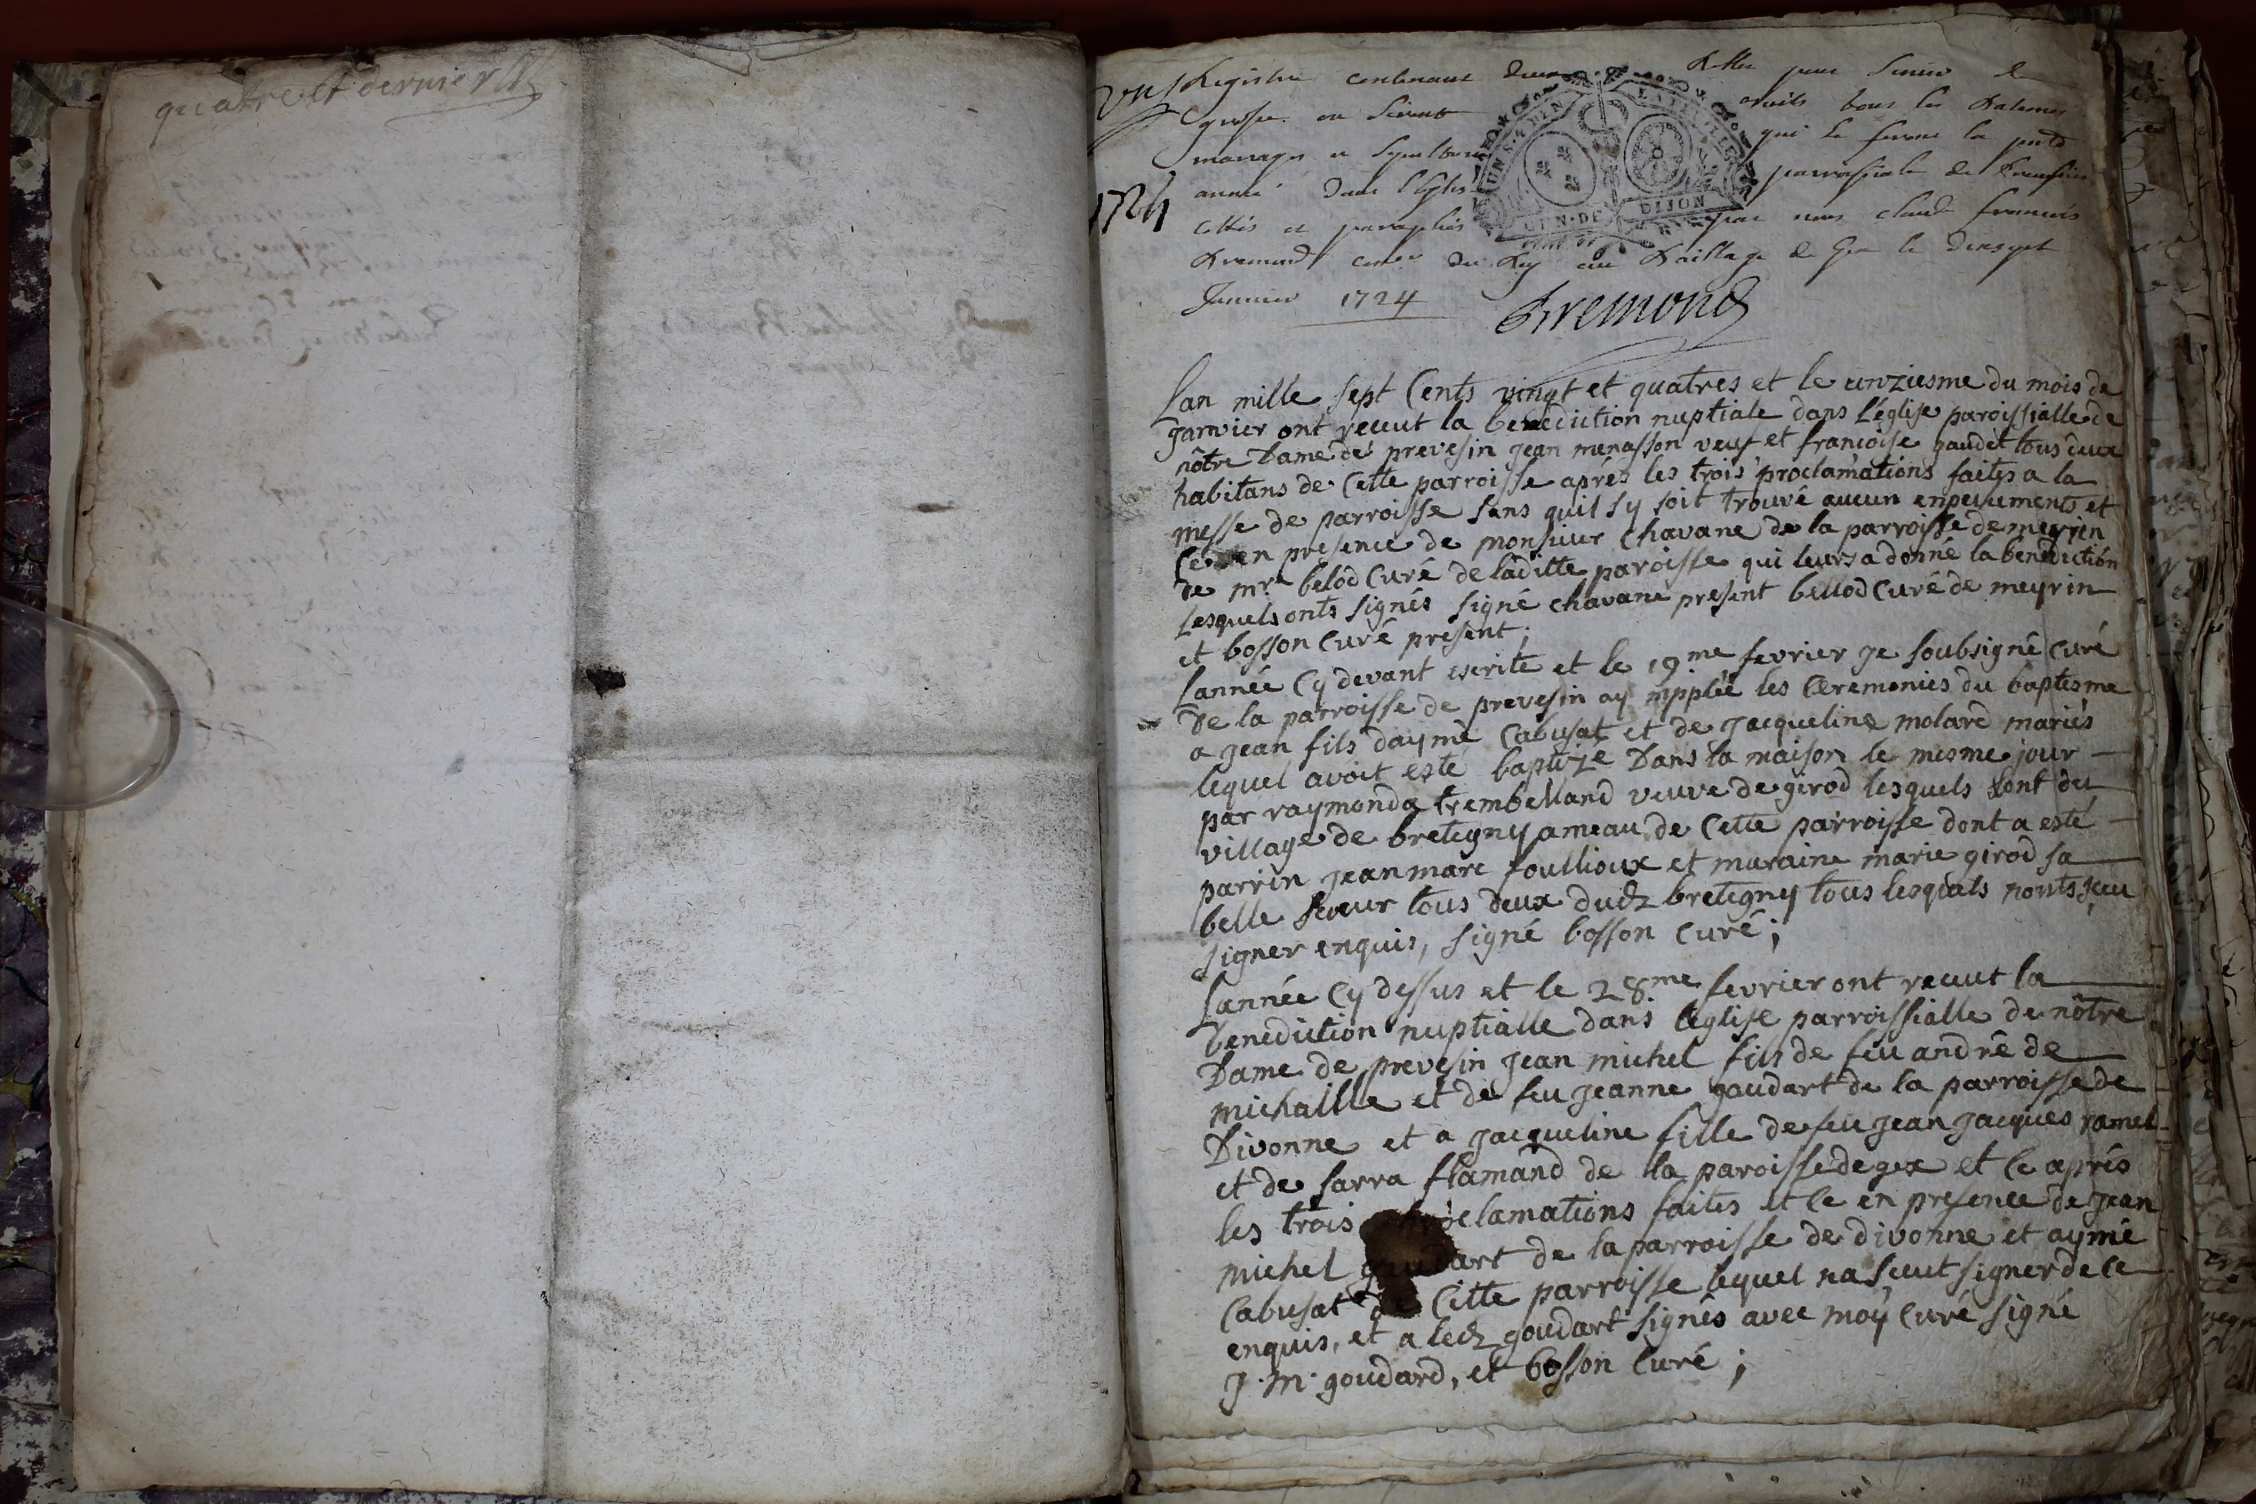 quatre et dernier
un Registre contenant deux
grosse ou Servir
mariages et Sepultures qui se feront la
année dans l'Eglise parroissiale de
1724
cottés et paraphés par nous claude francois
fremond du Roy au Baillage de Gex le
Janvier 1724
fremond
UN S. 4 DEN LA FEUILLE
GEN. DE DIJON
Lan mille sept Cents vingt et quatres et le unziesme du mois de
janvier ont receut la benediction nuptiale dans l'église paroissialle de
nôtre Dame de prevesin jean menasson veuf et francoise gaudet tous deux
habitans de Cette parroisse aprés les trois proclamations faites a la
messe de parroisse sans quil s'y soit trouvé aucun enpesuments et
Ce en presence de monsieur chavane de la parroisse de meyrin
de mr. belod Curé de laditte paroisse qui leurs a donné la benediction
Lesquels onts signés signé chavane present bellod Curé de meyrin
et bosson Curé present;
Lannée Cy devant escrite et le 19me fevrier je soubsigné Curé
De la parroisse de prevesin ay supplée les Ceremonies du baptesme
a jean fils daymé Cabusat et de jacqueline molard mariés
lequel avoit esté baptizé Dans la maison le mesme jour
par raymonda trembelland veuve de girod lesquels sont du
village de bretegny ameau de Cette parroisse dont a esté
parrin jean marc foullioux et maraine marie girod sa
belle soeur tous deux dudt bretegny tous lesquels nonts sceu
signer enquis, signé bosson Curé;
Lannée Cy dessus et le 28me fevrier ont receut la
benediction nuptialle dans l'eglise parroissialle de nôtre
Dame de prevesin jean michel fils de feu andré de
michaille et de feu jeanne goudart de la parroisse de
Divonne et a jacqueline fille de feu jean jacques ramel
et de sarra flamand de la paroisse de gex et Ce aprés
les trois proclamations faites et Ce en presence de jean
michel goudart de la parroisse de divonne et aymé
Cabusat de Cette parroisse lequel na sceut signer de Ce
enquis, et a ledt goudart signés avec moÿ Curé signé
J. m. goudard, et bosson Curé;